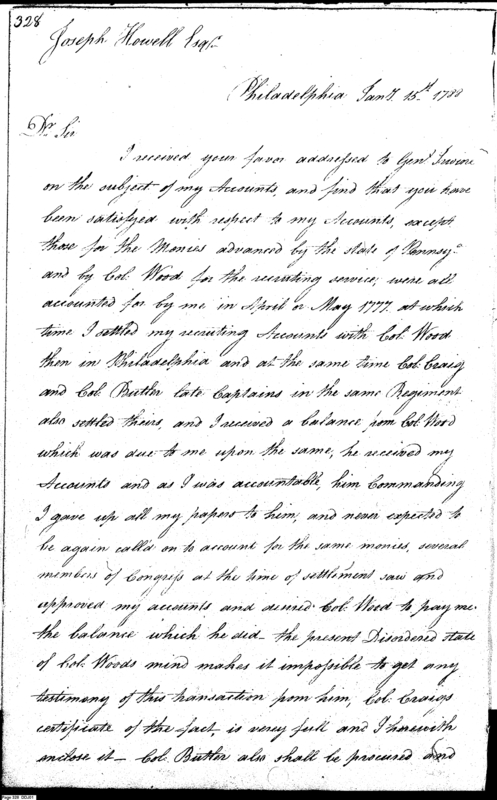 328
Joseph Howell Esqr.
Philadelphia Jany. 15th 1788
Dr. Sir
I received your favor addressed to Genl. Irvine
on the subject of my Accounts, and find that you have
been satisfyed with respect to my Accounts, except
those for the Monies advanced by the state of Pennsya.
and by Col. Wood for the recruiting service; were all
accounted for by me in April or May 1777. at which
time I settled my recruiting Accounts with Col. Wood
then in Philadelphia and at the same time Col. Craig
and Col. Butler late Captains in the same Regiment
also settled theirs, and I received a balance from Col Wood
which was due to me upon the same, he received my
Accounts and as I was accountable, him Commanding
I gave up all my papers to him, and never expected to
be again call'd on to account for the same monies, several
members of Congress at the time of settlement saw and
approved my accounts and desired Col. Wood to pay me
the balance which he did – the present Disordered state
of Col. Woods mind makes it impossible to get any
testimony of this transaction from him, Col. Craigs
certificate of the fact is very full and I herewith
enclose it – Col. Butler also shall be procured and
Page 328 DDJ01